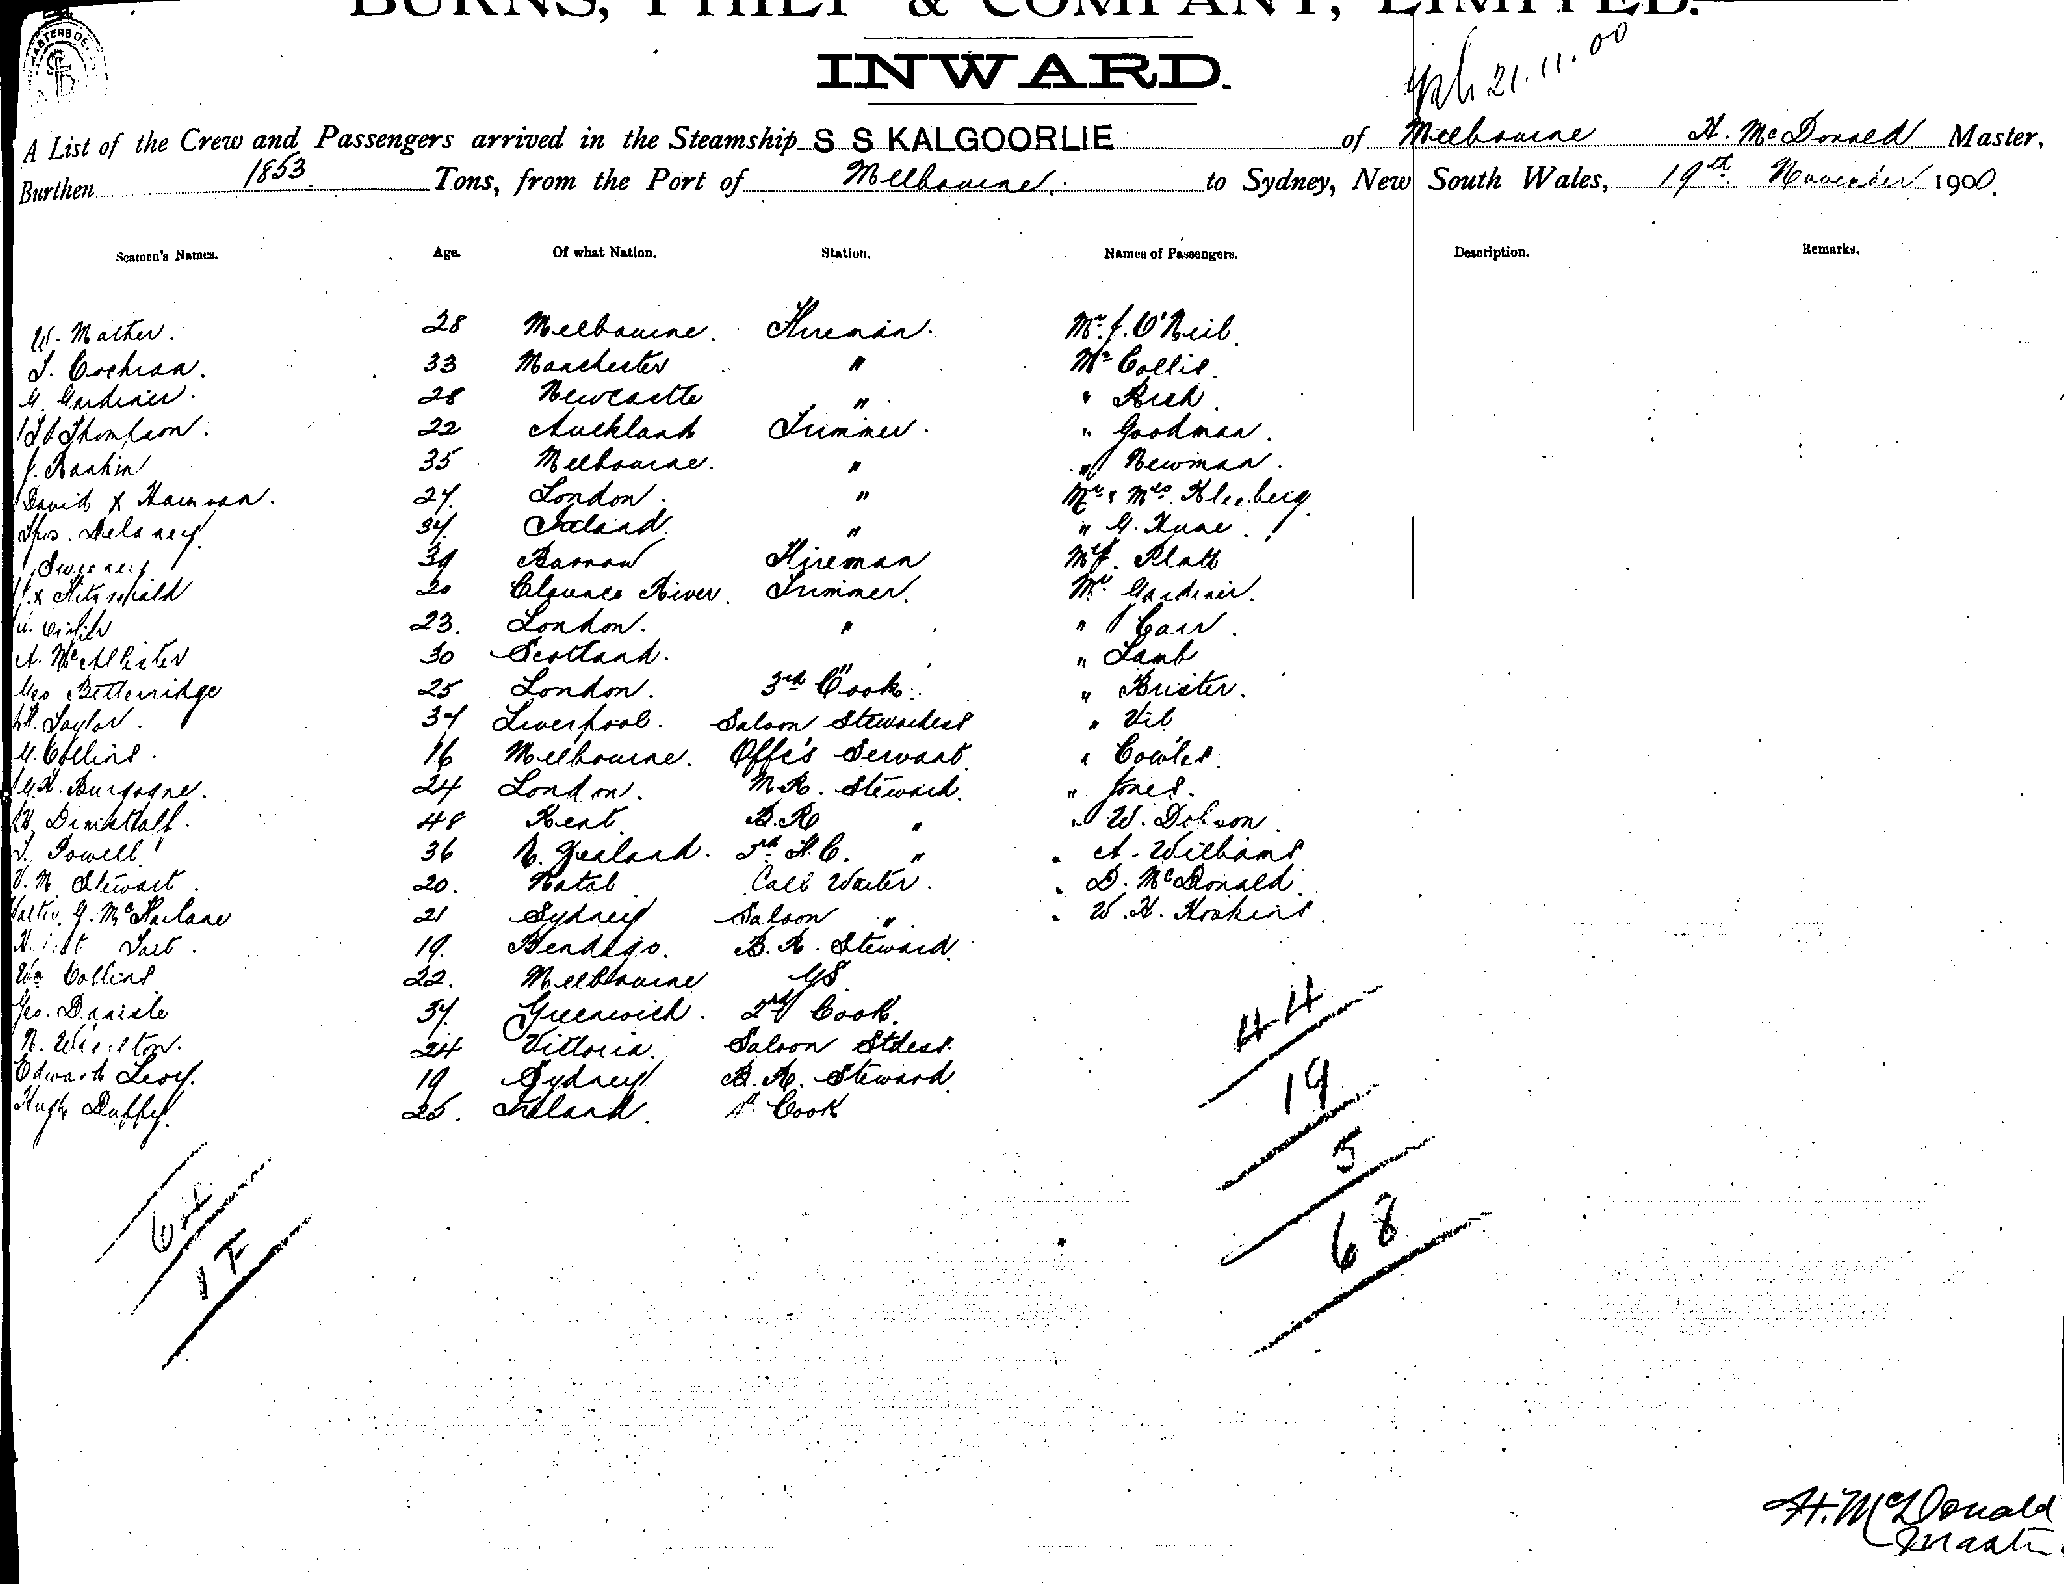 BURNS, PHILP & COMPANY, LIMITED.
INWARD.
21.11.00
A List of the Crew and Passengers arrived in the Steamship S S KALGOORLIE of Melbourne H. McDonald Master,
Burthen 1853 Tons, from the Port of Melbourne. to Sydney, New South Wales, 19th November 1900.
Seamen's Names. Age. Of what Nation. Station. Names of Passengers. Description. Remarks.
W. Mather. 28 Melbourne. Fireman. Mr. J. O'Neil.
T. Cochran. 33 Manchester " Mr Collis.
G. Gardiner. 28 Newcastle " " Rich.
Thompson. 22 Auckland Trimmer. " Goodman.
J. Rankin 35 Melbourne. " " Newman.
David x 27. London. " Mr & Mrs.
Thos. Delaney. 37. Ireland. " " G.
Sweeney 39 Fireman Mr J. Platt
J. x Fitzgerald 20 Clarence River. Trimmer. Mr Gardiner.
23. London. " " Carr.
A. McAllister 30 Scotland. " " Lamb
Geo Betteridge 25 London. 3rd Cook. "
Taylor. 37 Liverpool. Saloon Stewardess "
G. Collins. 16 Melbourne. Offi's Servant. " Cowles.
Burgogne. 24 London. M.R. Steward. " Jones.
48 Kent. B.R " " W. Dobson.
T. Powell 36 N. Zealand. " " A. Williams
V. N. Stewart. 20. Natal Call Waiter. " D. McDonald.
Walter G. McFarlane 21 Sydney Saloon " " W. H. Hoskins.
19. Bendigo. B. R. Steward.
Wm Collins. 22. Melbourne GS.
Geo. Daniels 37. Greenwich. 2nd Cook.
24 Victoria. Saloon Stdess.
Edward Levy. 19 Sydney B. R. Steward
Hugh Duffey. 25. Ireland. Cook
44
19
5
68
1 F
H. McDonald
Master.